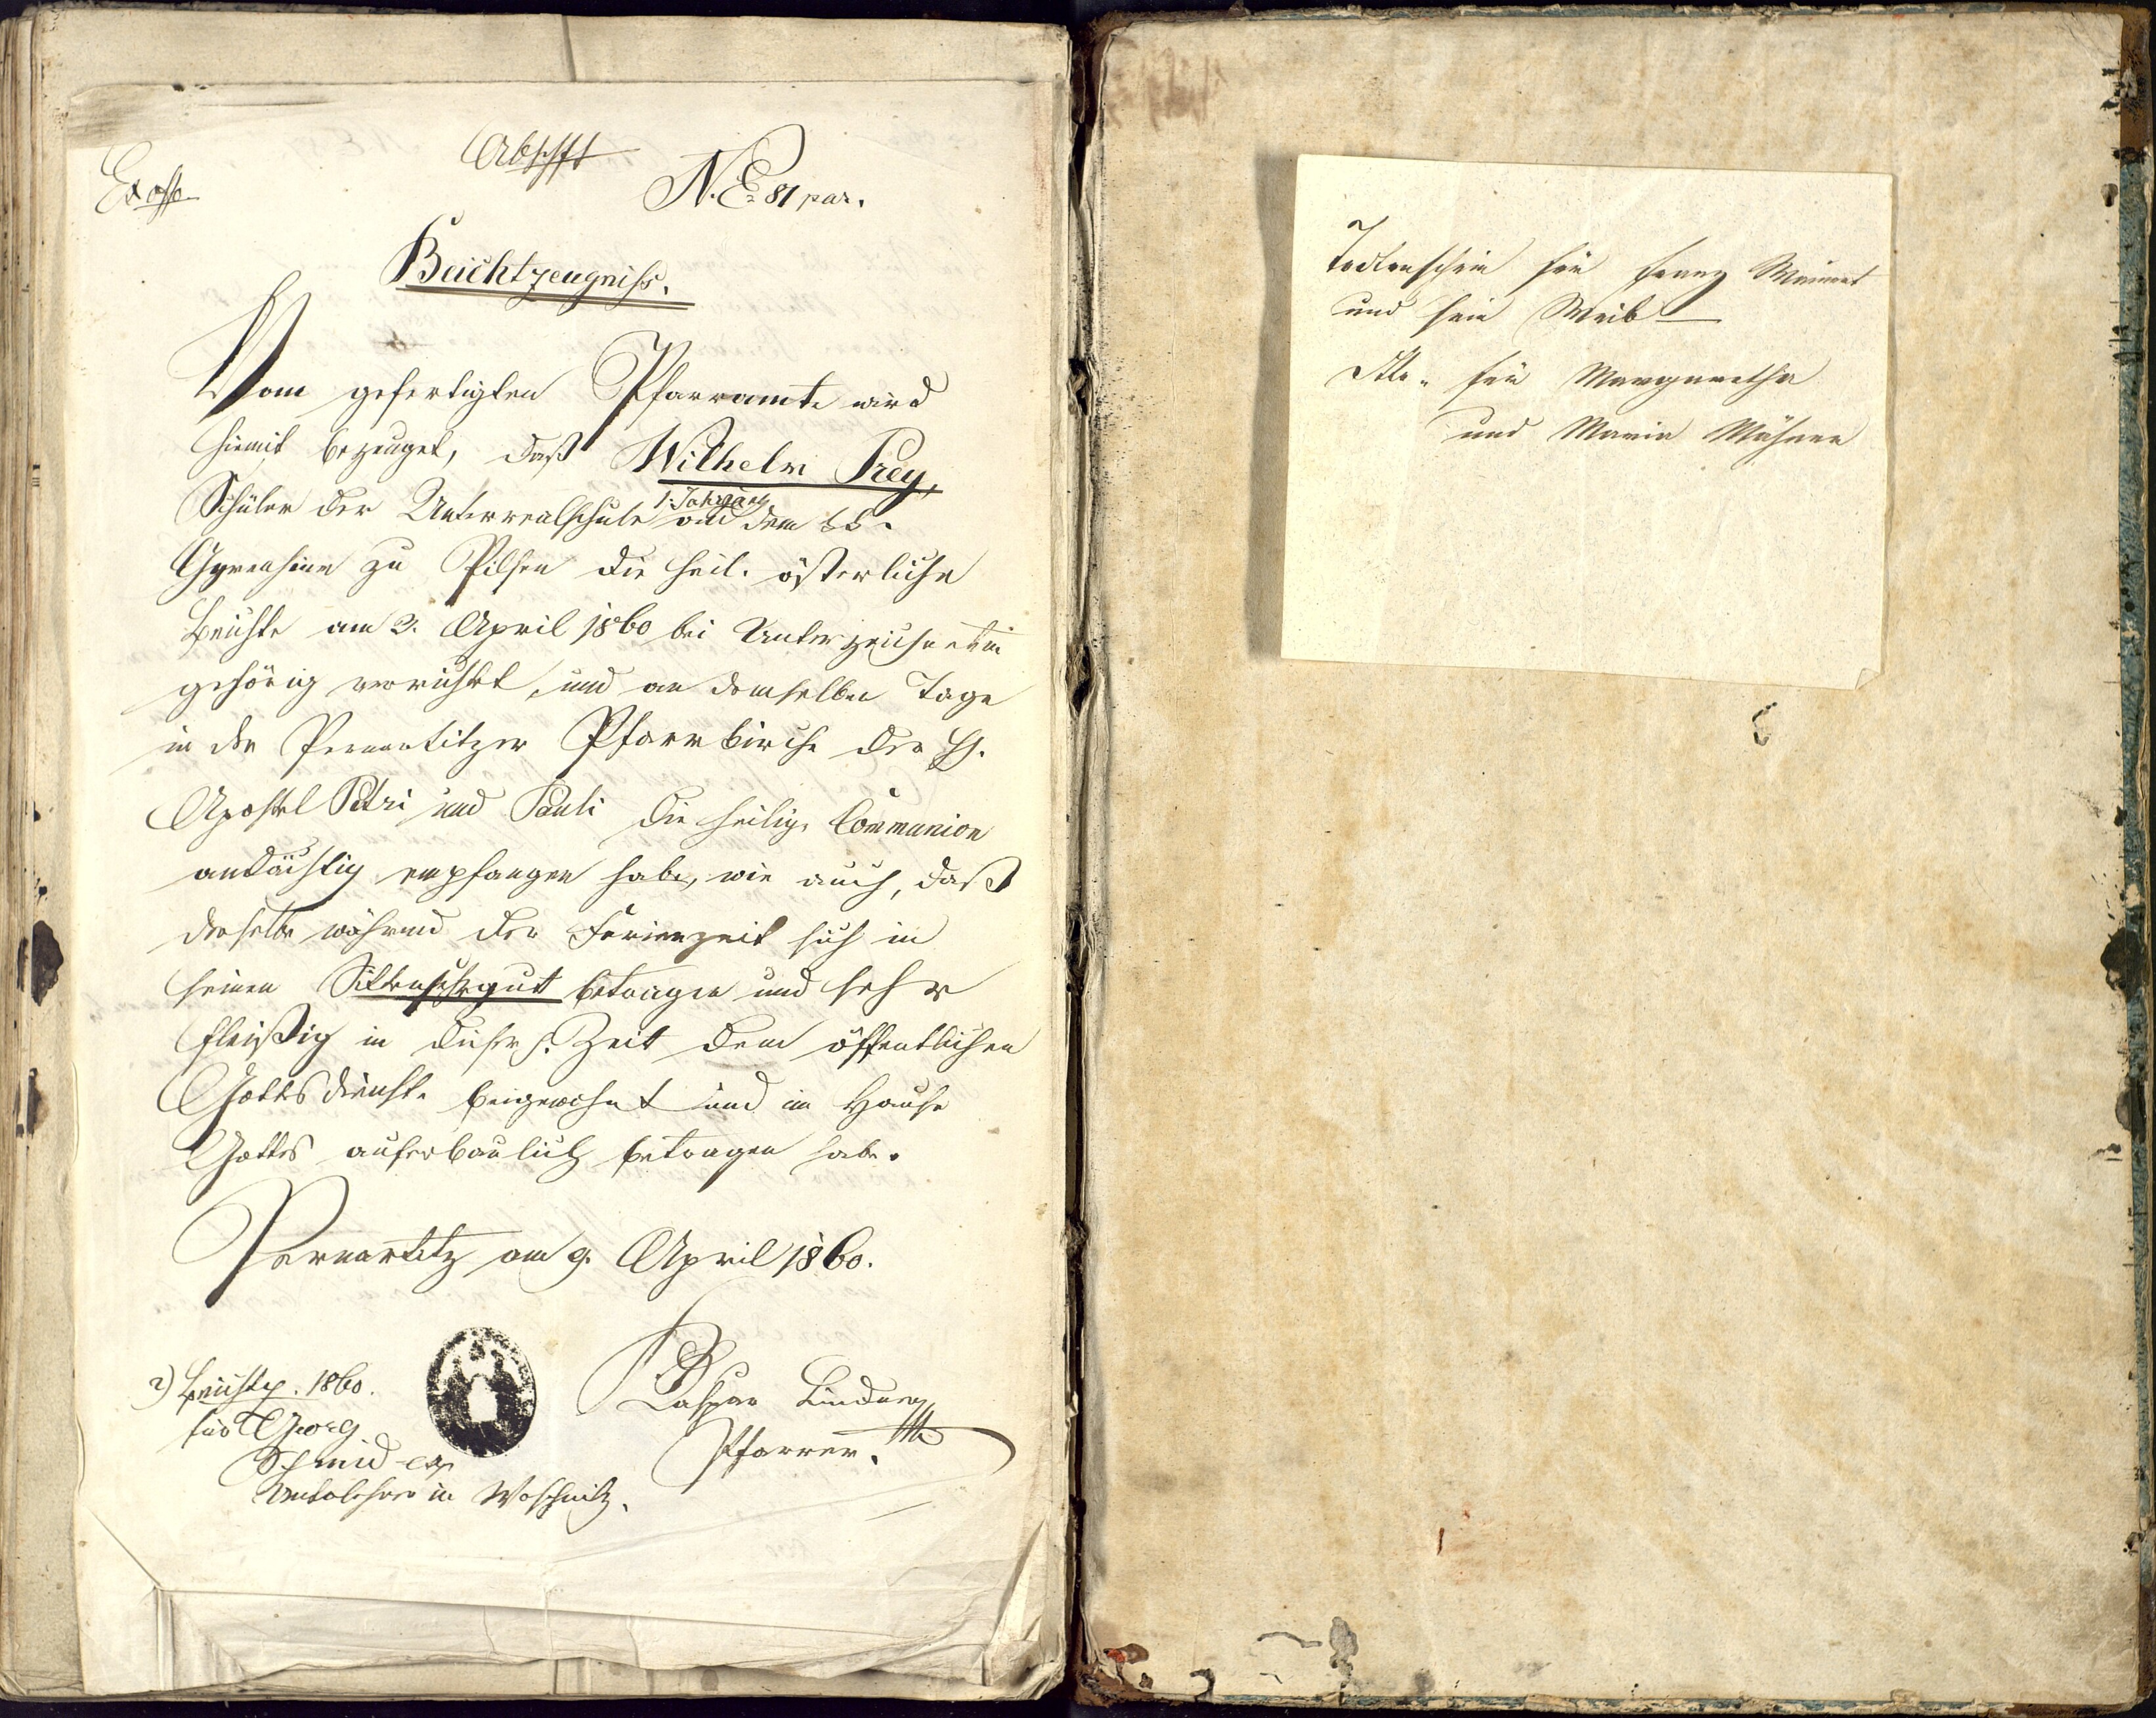 Abschft
Ex offo
N. E. 81 par.
Beichtzeugniss.
Vom gefertigten Pfarramte wird
hiemit bezeuget, daß Wilhelm Frey,
1. Jahrgang
Schüler der Unterrealschule an dem k. k.
Gymnasium zu Pilsen die heil. österliche
Beichte am 3. April 1860 bei Unterzeichnetem
gehörig verrichtet, und an demselben Tage
in der Pernartitzer Pfarrkirche der H.
Apostel Petri und Pauli die heilige Communion
andächtig empfangen habe, wie auch, daß
derselbe während der Ferienzeit sich in
seinen Sitten sehr gut betragen und sehr
fleißig in dieser h. Zeit dem öffentlichen
Gottesdienste beigewohnt und im Hause
Gottes auferbaulich betragen habe.
Pernartitz am 9. April 1860.
Kaspar Lindner
Pfarrer.
2) Beichtz. 1860.
für Georg
Schmid
Unterlehrer in Woschnitz.
Todtenschein für Franz
und sein Weib
dtto. für Margaretha
und Maria